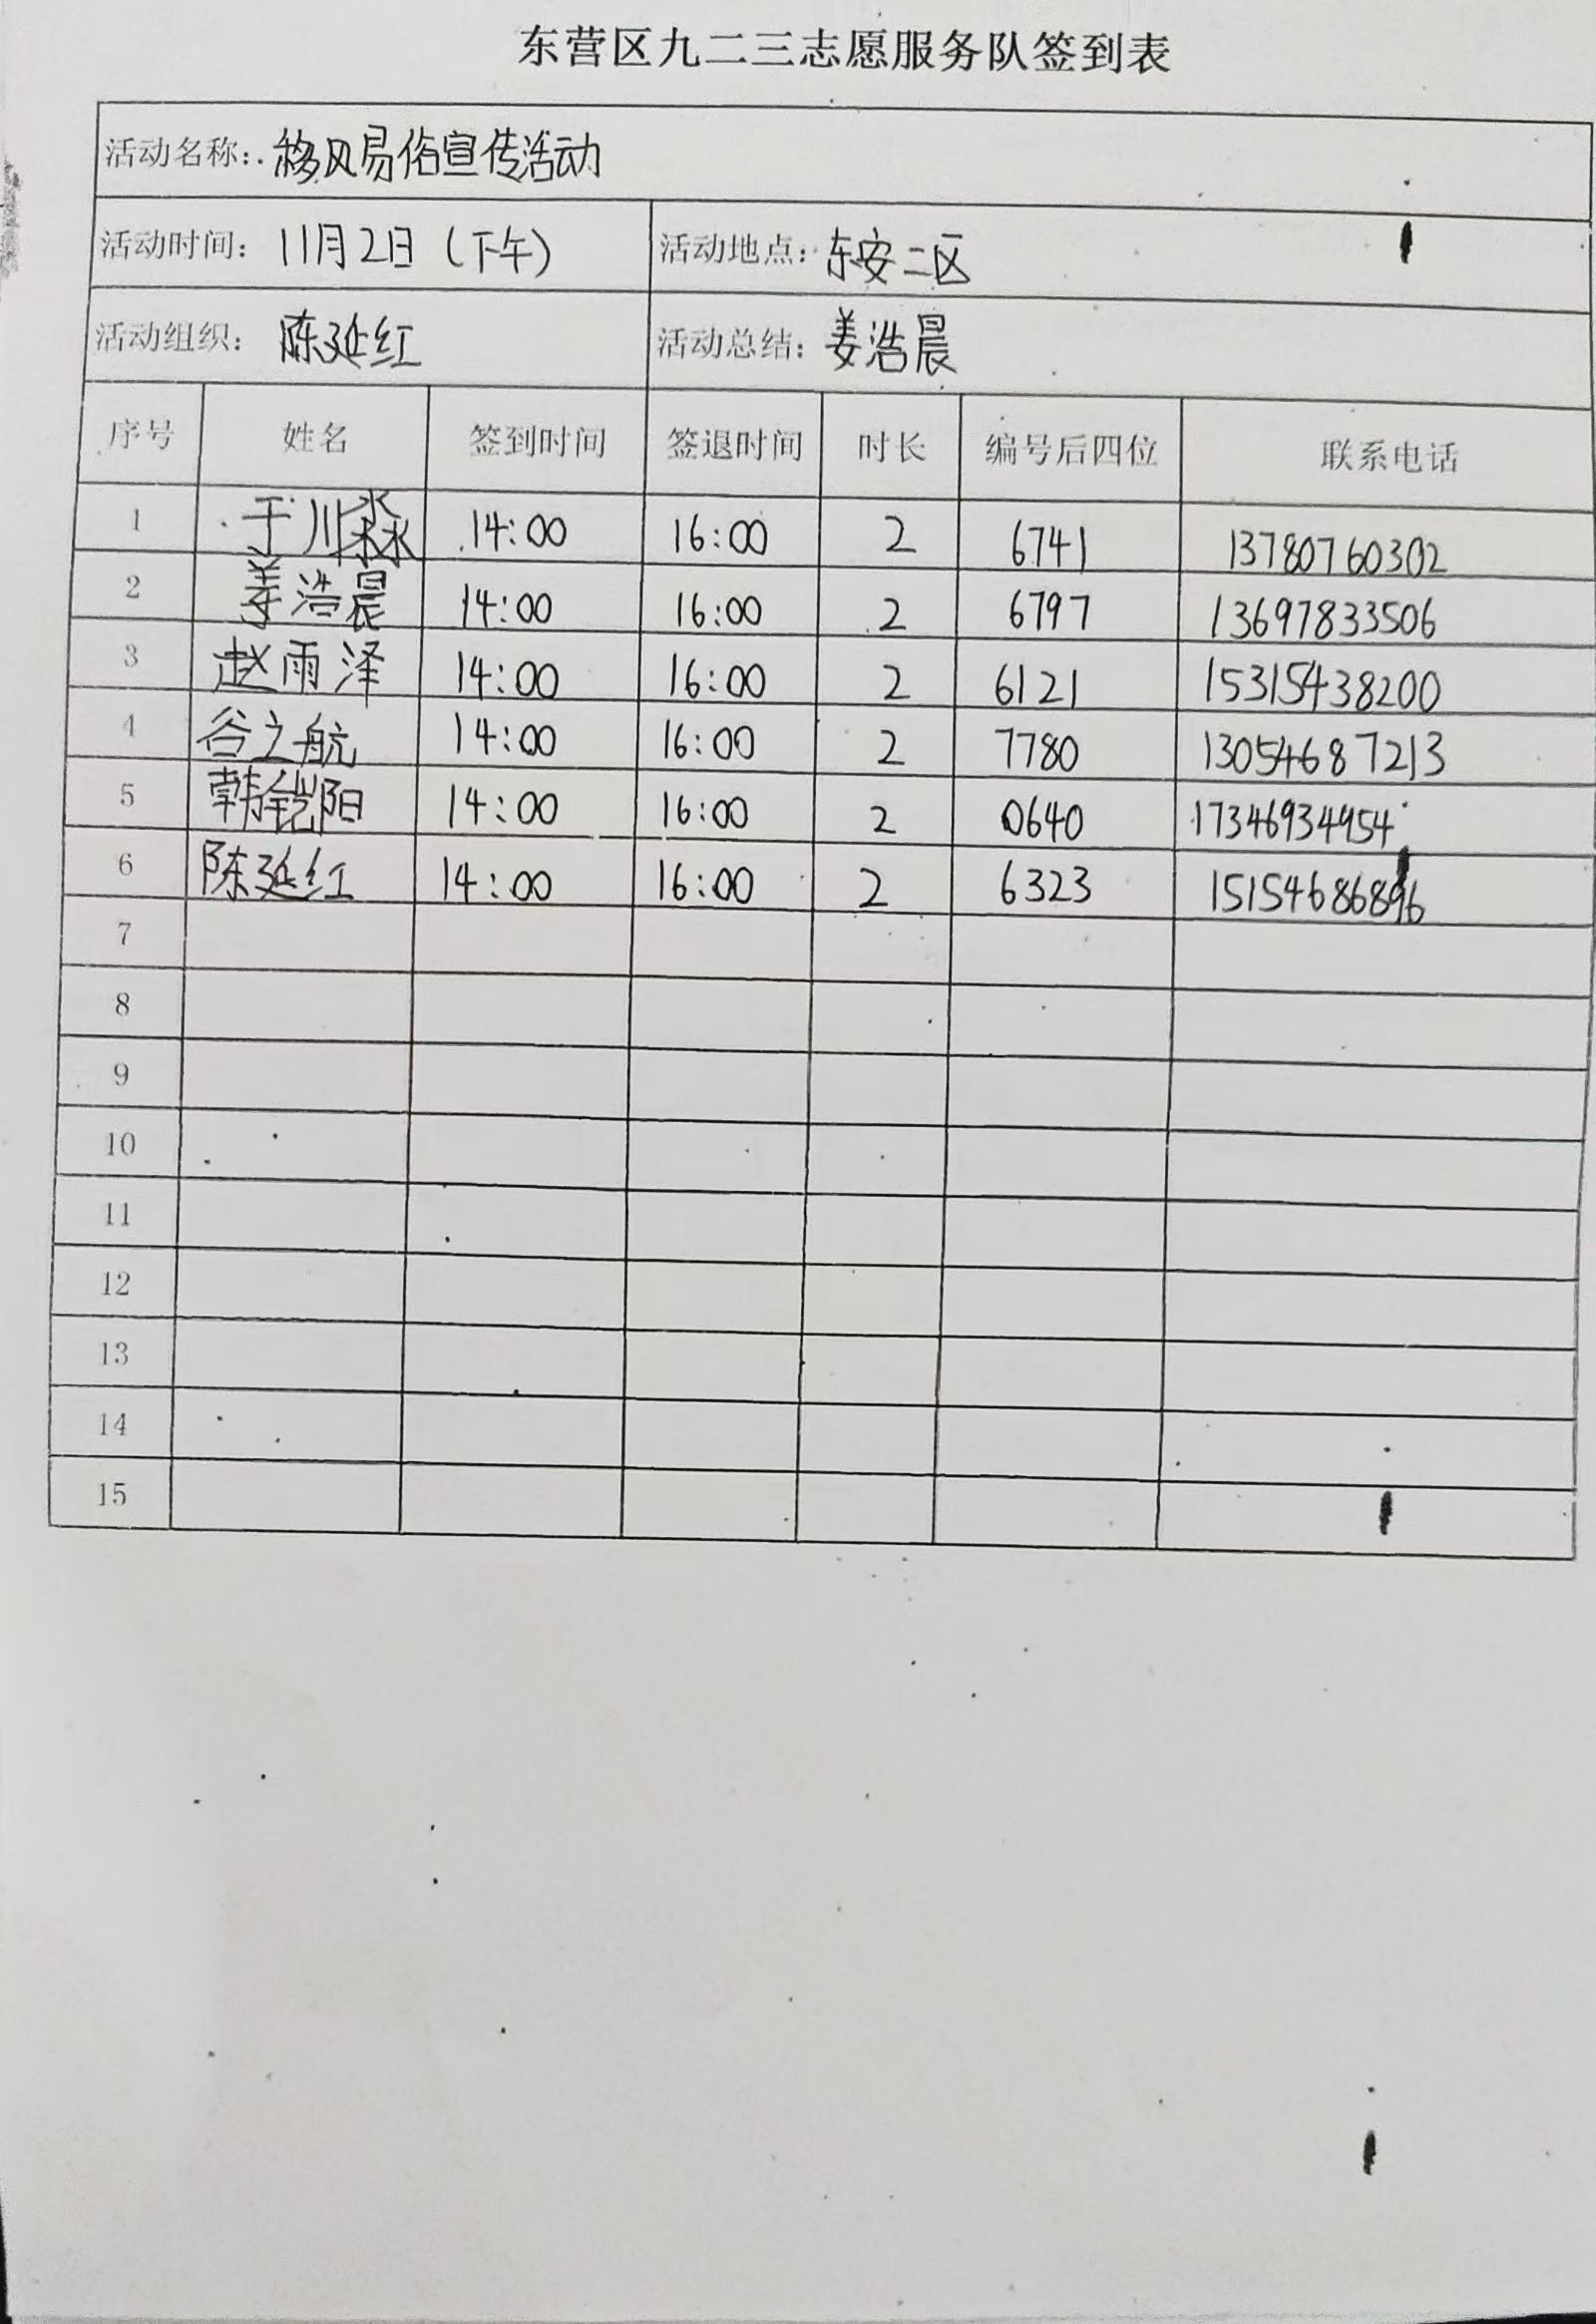 东营区九二三志愿服务队签到表
活动名称: 移风易俗宣传活动
活动时间: 11月2日(下午) 活动地点: 东安二区
活动组织: 陈延红 活动总结: 姜浩晨
序号 姓名 签到时间 签退时间 时长 编号后四位 联系电话
1 于川淼 14:00 16:00 2 6741 13780760302
2 姜浩晨 14:00 16:00 2 6797 13697833506
3 赵雨泽 14:00 16:00 2 6121 15315438200
4 谷之航 14:00 16:00 2 7780 13054687213
5 韩铠阳 14:00 16:00 2 0640 17346934954
6 陈延红 14:00 16:00 2 6323 15154686896
7
8
9
10
11
12
13
14
15